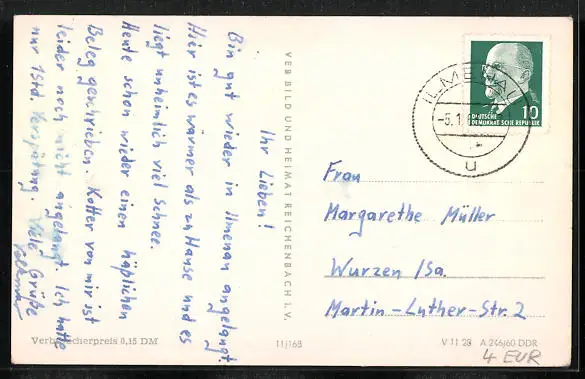 Ihr Lieben!
Bin gut wieder in Ilmenau angelangt.
Hier ist es wärmer als zu Hause und es
liegt unheimlich viel Schnee.
Heute schon wieder einen häplichen
Beleg geschrieben. Koffer von mir ist
leider noch nicht angelangt. Ich hatte
nur 1Std. Verspätung. Viele Grüße
Volkmar
VEB BILD UND HEIMAT REICHENBACH I. V.
ILMENAU
-5.1.
u
10
DEUTSCHE
DEMOKRATISCHE REPUBLIK
Frau
Margarethe Müller
Wurzen /Sa.
Martin-Luther-Str. 2
Verbraucherpreis 0,15 DM
11/168
V 11 28 A 246/60 DDR
4 EUR